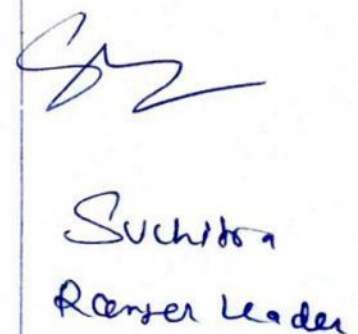 Suchitra
Ranger Leader